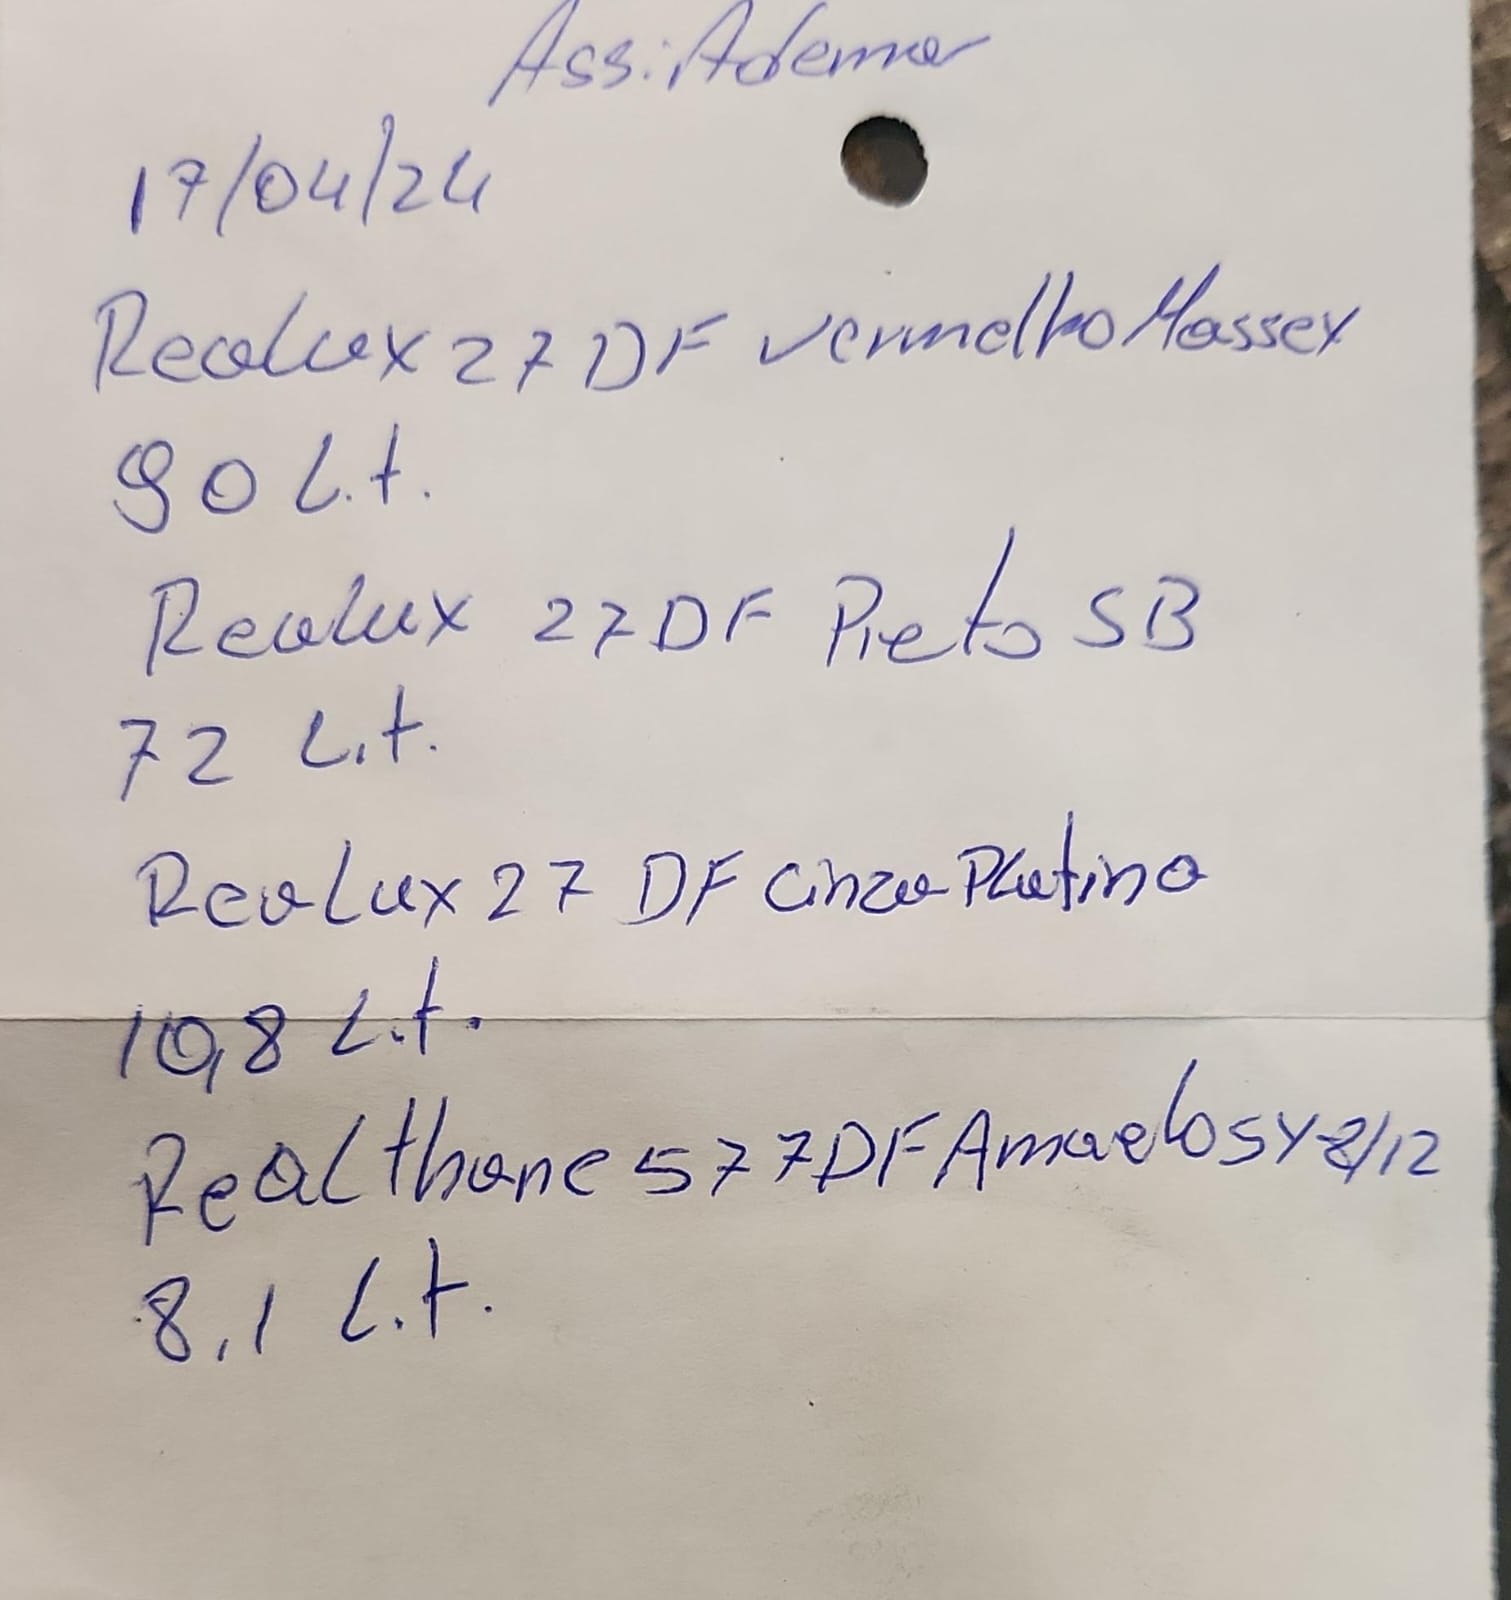 Ass: Ademar
17/04/24
Realux 27 DF vermelho Massex
90 L.t.
Realux 27 DF Preto SB
72 L.t.
Realux 27 DF Cinza Platina
10,8 L.t.
Realthane 577 DF Amaelo 5Y 8/12
8,1 L.t.